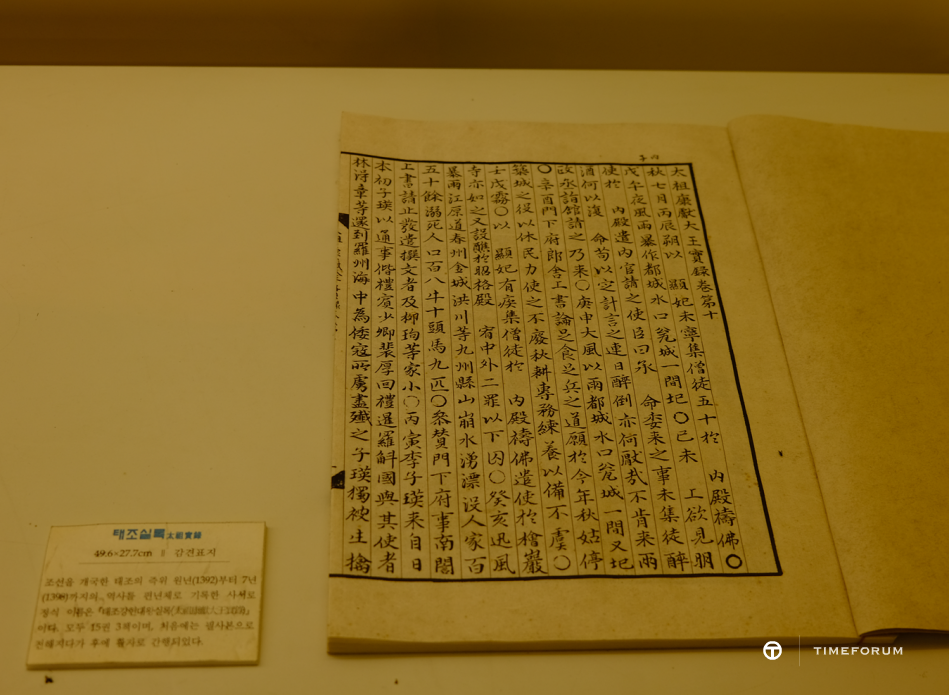 太祖康獻大王實錄卷第十
秋七月丙辰朔以 顯妃未寧集僧徒五十於 內殿禱佛〇
戊午夜風雨暴作都城水口瓮城一間圮〇己未 上欲見朋
使於 內殿遣內官請之使臣曰承 命委来之事未集徒醉
酒何以復 命苟以定計言之連日醉倒亦何厭哉不肯来兩
政丞詣館請之乃来〇庚申大風以雨都城水口瓮城一間又圮
〇辛酉門下府郎舍上書論足食足兵之道願於今年秋姑停
築城之役以休民力使之不廢秋耕專務練養以備不虞〇
壬戌霧〇以 顯妃有疾集僧徒於 內殿禱佛遣使於檜巖
寺亦如之又設醮於昭格殿 宥中外二罪以下囚〇癸亥迅風
暴雨江原道春州金城洪川等九州縣山崩水湧漂沒人家百
五十餘溺死人口百八牛十頭馬九匹〇叅賛門下府事南誾
上書請止發遣撰文者及柳珣等家小〇丙寅李子瑛来自日
本初子瑛以通事偕禮賓少卿裴厚回禮暹羅斛國與其使者
林得章等還到羅州海中為倭寇所虜盡殲之子瑛獨被生擒
태조실록 太祖實錄
49.6×27.7cm 감견표지
조선을 개국한 태조의 즉위 원년(1392)부터 7년
(1398)까지의 역사를 편년체로 기록한 사서로
정식 이름은 『태조강헌대왕실록(太祖康獻大王實錄)』
이다. 모두 15권 3책이며, 처음에는 필사본으로
전해지다가 후에 활자로 간행되었다.
TIMEFORUM